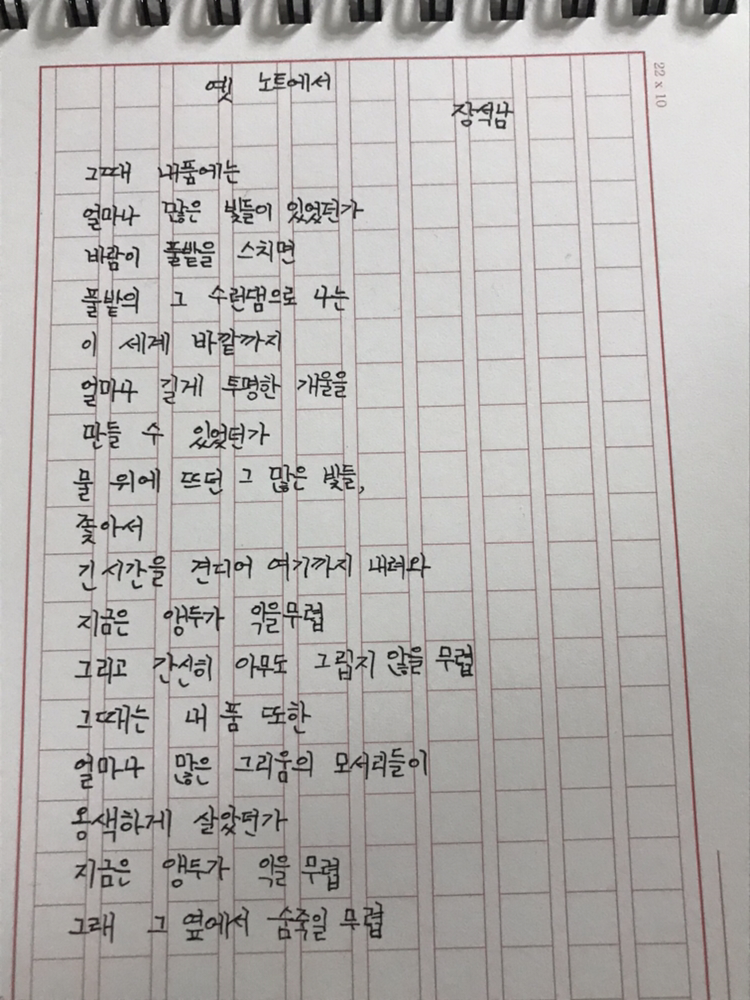 22 x 10
옛 노트에서
장석남
그때 내품에는
얼마나 많은 빛들이 있었던가
바람이 풀밭을 스치면
풀밭의 그 수런댐으로 나는
이 세계 바깥까지
얼마나 길게 투명한 개울을
만들 수 있었던가
물 위에 뜨던 그 많은 빛들,
좇아서
긴 시간을 견디어 여기까지 내려와
지금은 앵두가 익을 무렵
그리고 간신히 아무도 그립지 않을 무렵
그때는 내 품 또한
얼마나 많은 그리움의 모서리들이
옹색하게 살았던가
지금은 앵두가 익을 무렵
그래 그 옆에서 숨죽일 무렵